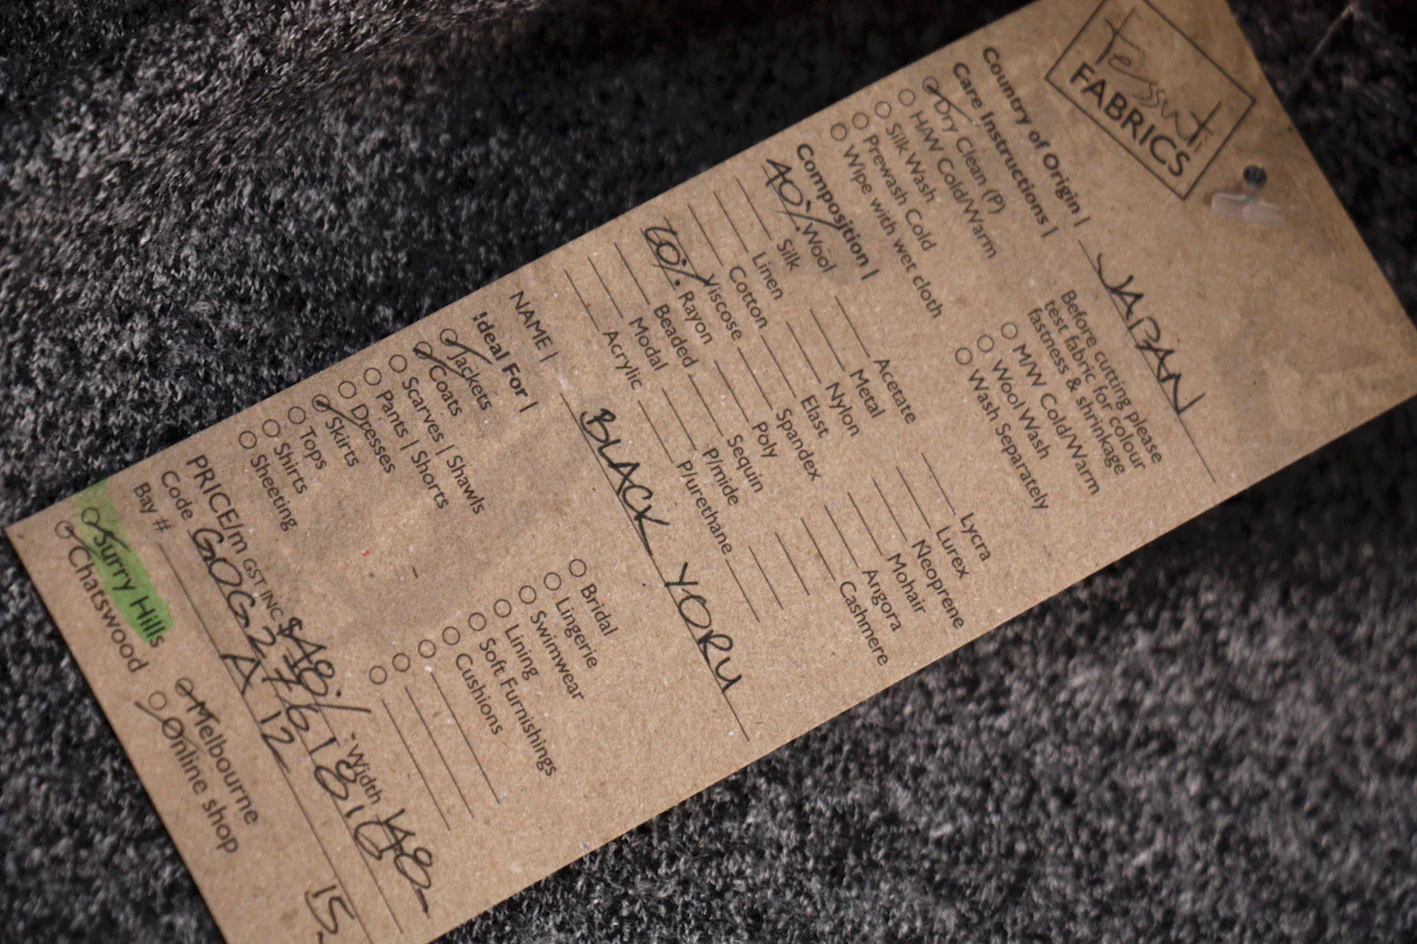 Tessuti
FABRICS
Country of Origin | JAPAN
Care Instructions |
Before cutting please
test fabric for colour
fastness & shrinkage
Dry Clean (P)
H/W Cold/Warm
Silk Wash
Prewash Cold
Wipe with wet cloth
M/W Cold/Warm
Wool Wash
Wash Separately
Composition |
40% Wool
Silk
Linen
Cotton
Viscose
60% Rayon
Beaded
Modal
Acrylic
Acetate
Metal
Nylon
Elast
Spandex
Poly
Sequin
P/mide
P/urethane
Lycra
Lurex
Neoprene
Mohair
Angora
Cashmere
NAME | BLACK YORU
Ideal For |
Jackets
Coats
Scarves | Shawls
Pants | Shorts
Dresses
Skirts
Tops
Shirts
Sheeting
Bridal
Lingerie
Swimwear
Lining
Soft Furnishings
Cushions
PRICE/m GST INC $48 Width 148
Code
Bay # A 12
Surry Hills
Chatswood
Melbourne
Online shop
15